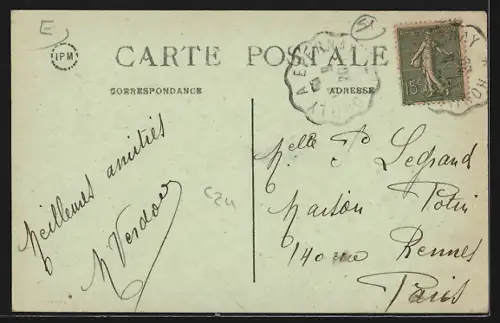 E
51
IPM
CARTE POSTALE
CORRESPONDANCE
ADRESSE
15c
Meilleures amitiés
M Verdon
C24
Melle P Legrand
Maison Potin
140 rue Rennes
Paris